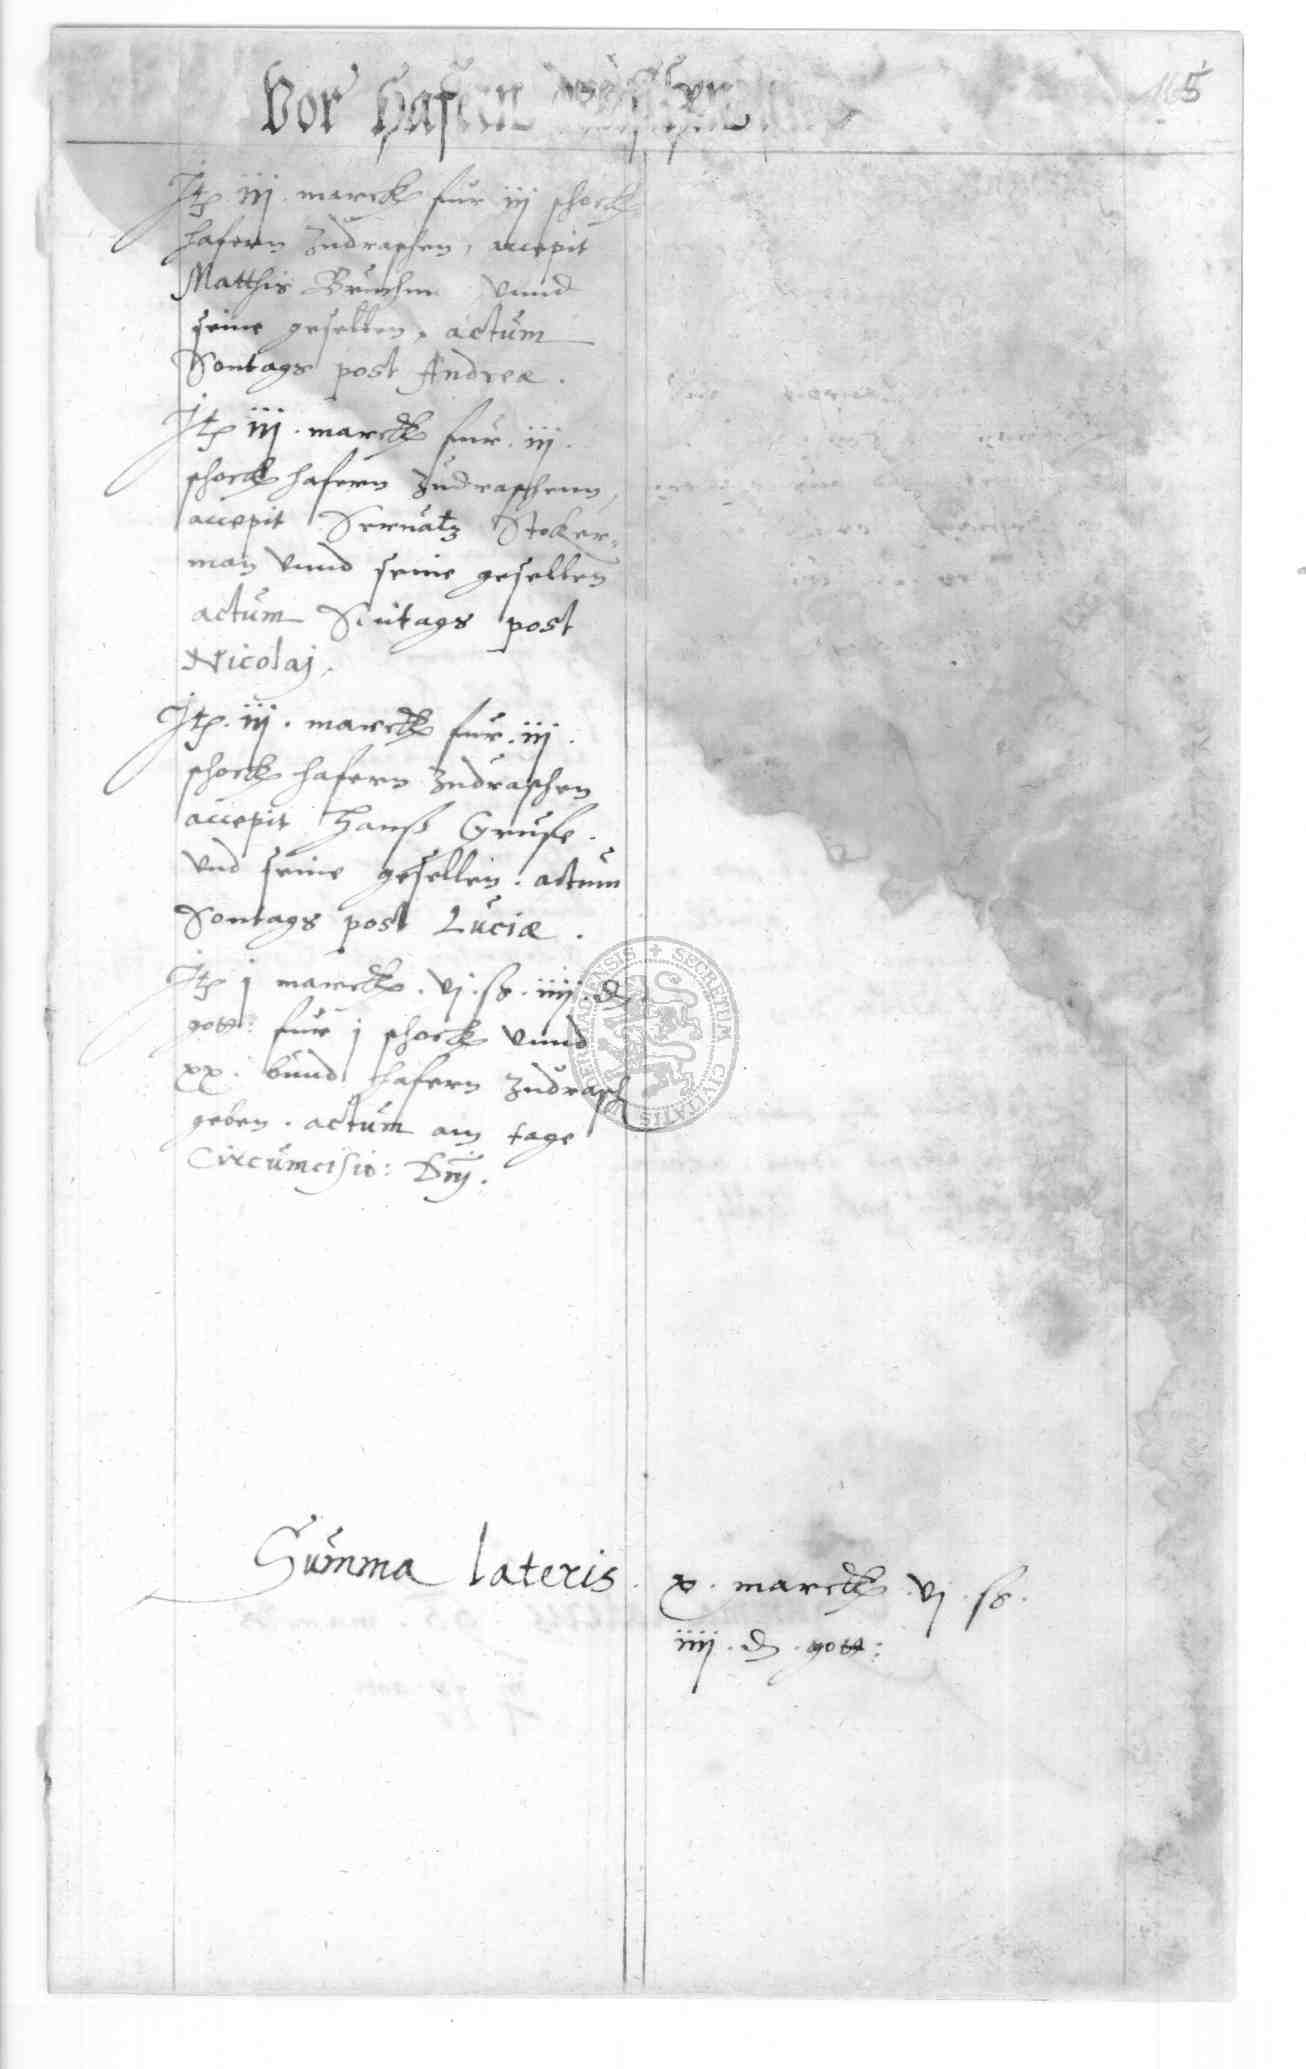 165
Vor Hafern
Jtp iij . marck fur iij schock
hafern zudraschen, accepit
Matthis vnnd
seine gesellen . actum
Sontags post Andreæ .
Jtp iij . marck fur . iij .
schock hafern zudraschenn,
accepit Seruatz Stoker=
man vnnd seine gesellen
actum Sontags post
Nicolaj .
Jtp . iij . marck fur . iij .
schock hafern zudraschen
accepit Hanß Gruse .
vnd seine gesellen . actum
Sontags post Luciæ .
Jtp j marck . vj . ss . iiij . d
gott: fur j schock vnnd
xx . bund hafern zudrasch
geben . actum am tage
Circumcisio: Dnj .
SECRETUM CIVITATIS
Summa lateris . x . marck . vj . ss .
iiij . d . gott: